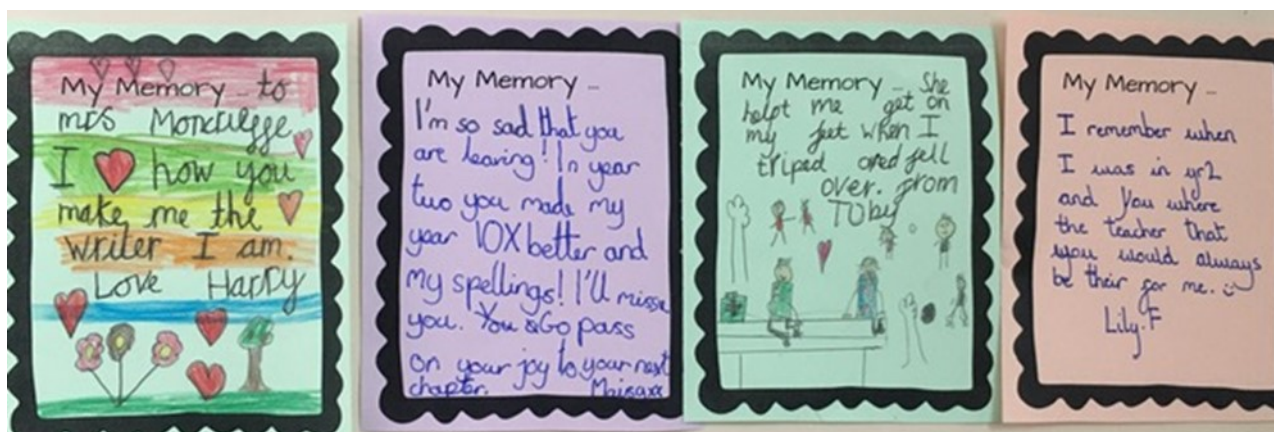 My Memory ... to
mrs
I how you
make me the
writer I am.
Love Harry
My Memory ...
I'm so sad that you
are leaving! In year
two you made my
year 10X better and
my spellings! I'll miss
you. You Go pass
on your joy to your next
chapter. Maisaxx
My Memory ... She
helpt me get on
my feet when I
triped and fell
over. from
TOby
My Memory ...
I remember when
I was in yr2
and You where
the teacher that
you would always
be their for me.
Lily.F